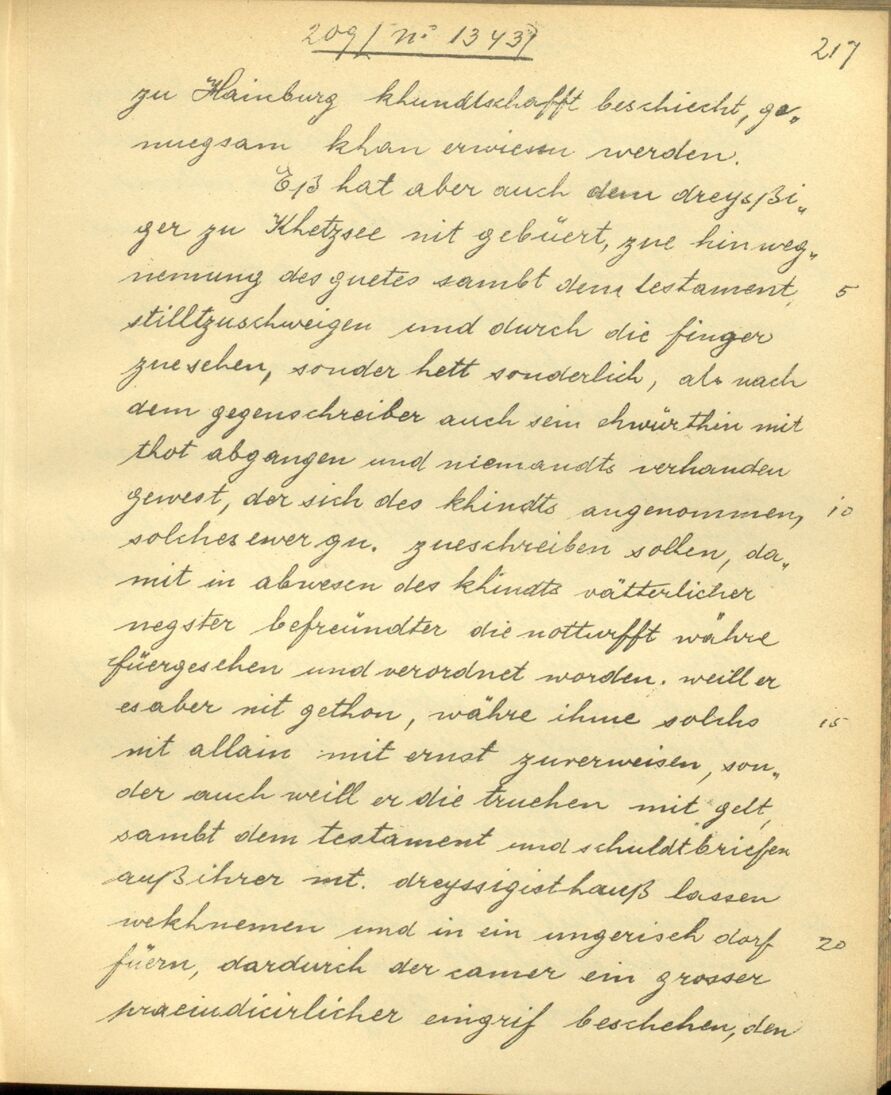 209/ No 1343/
217
zu Hainburg khundtschafft beschiecht, ge„
nuegsam khan erwiesen werden.
Eß hat aber auch dem dreysßi„
ger zu Khetzsee nit gebüert, zue hinweg„
nemung des guetes sambt dem testament, 5
stilltzuschweigen und durch die finger
zuesehen, sonder hett sonderlich, als nach
dem gegenschreiber auch sein ehwürthin mit
thot abgangen und niemandts verhanden
gewest, der sich des khindts angenommen, 10
solches ewer gn. zueschreiben sollen, da„
mit in abwesen des khindts vätterlicher
negster befreündter die notturfft währe
füergesehen und verordnet worden. weill er
es aber nit gethon, währe ihme solchs 15
nit allain mit ernst zuverweisen, son„
der auch weill er die truchen mit gelt,
sambt dem testament und schuldtbriefen
auß ihrer mt. dreyssigisthauß lassen
wekhnemen und in ein ungerisch dorf 20
füern, dardurch der camer ein grosser
praeiudicirlicher eingrif beschehen, den